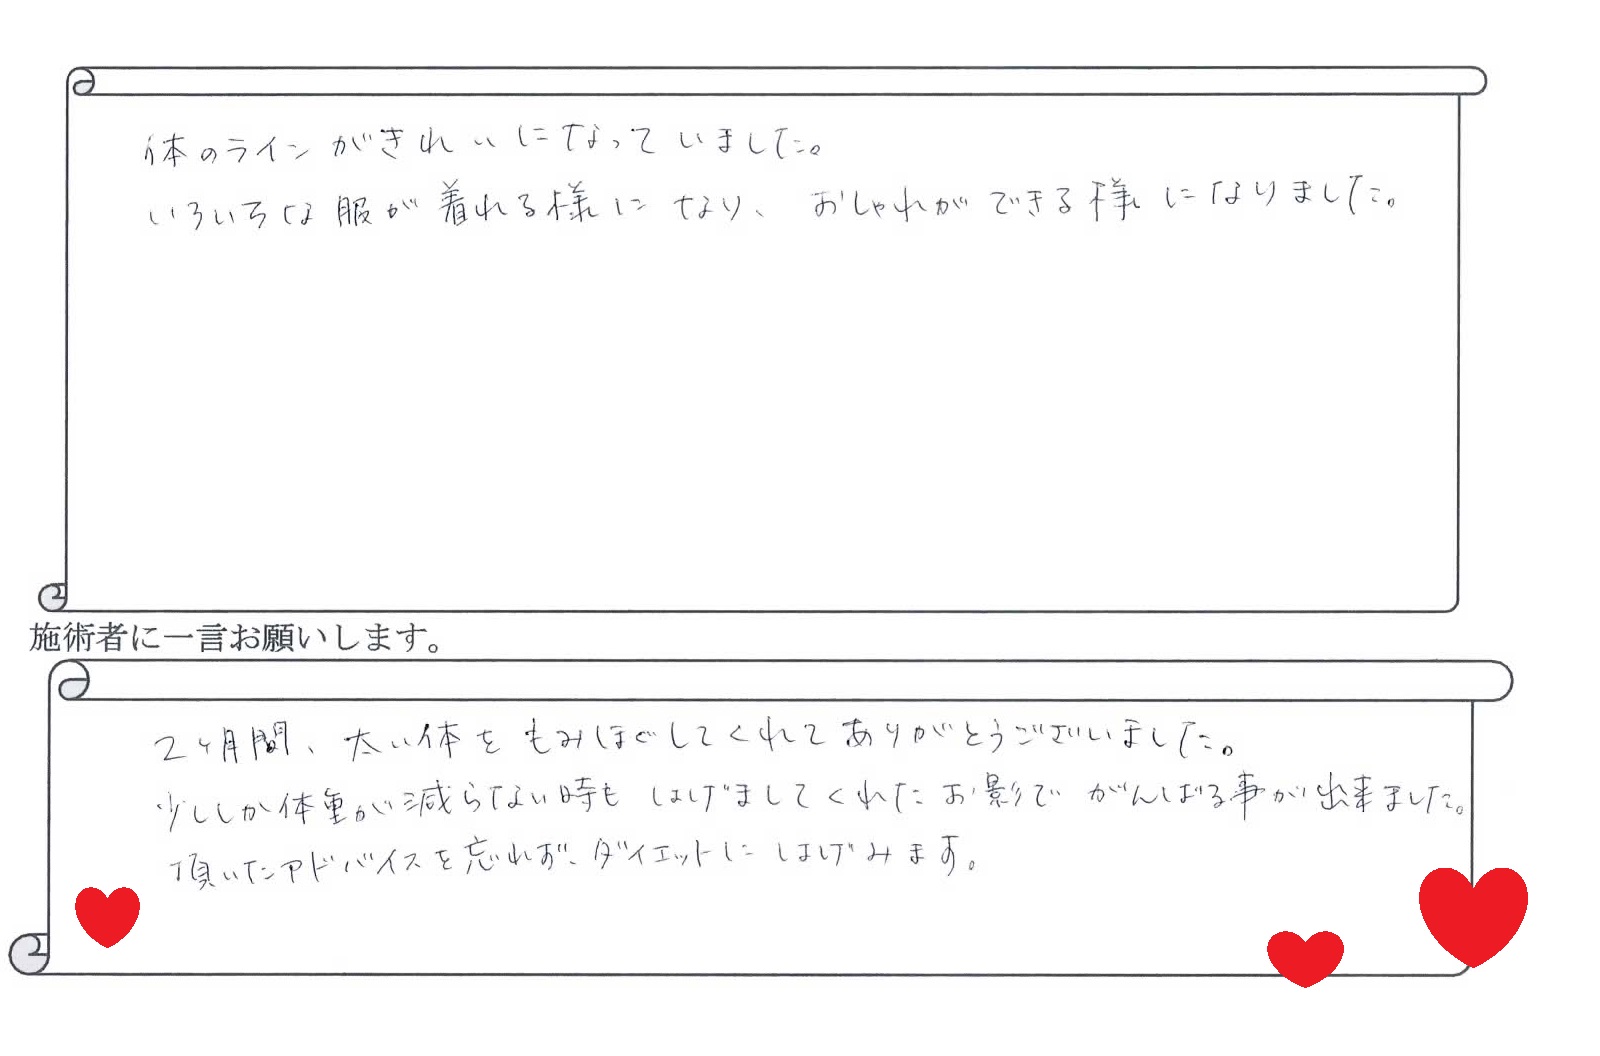 体のラインがきれいになっていました。
いろいろな服が着れる様になり、おしゃれができる様になりました。
施術者に一言お願いします。
2ヶ月間、太い体をもみほぐしてくれてありがとうございました。
少ししか体重が減らない時もはげましてくれたお影でがんばる事が出来ました。
頂いたアドバイスを忘れず、ダイエットにはげみます。